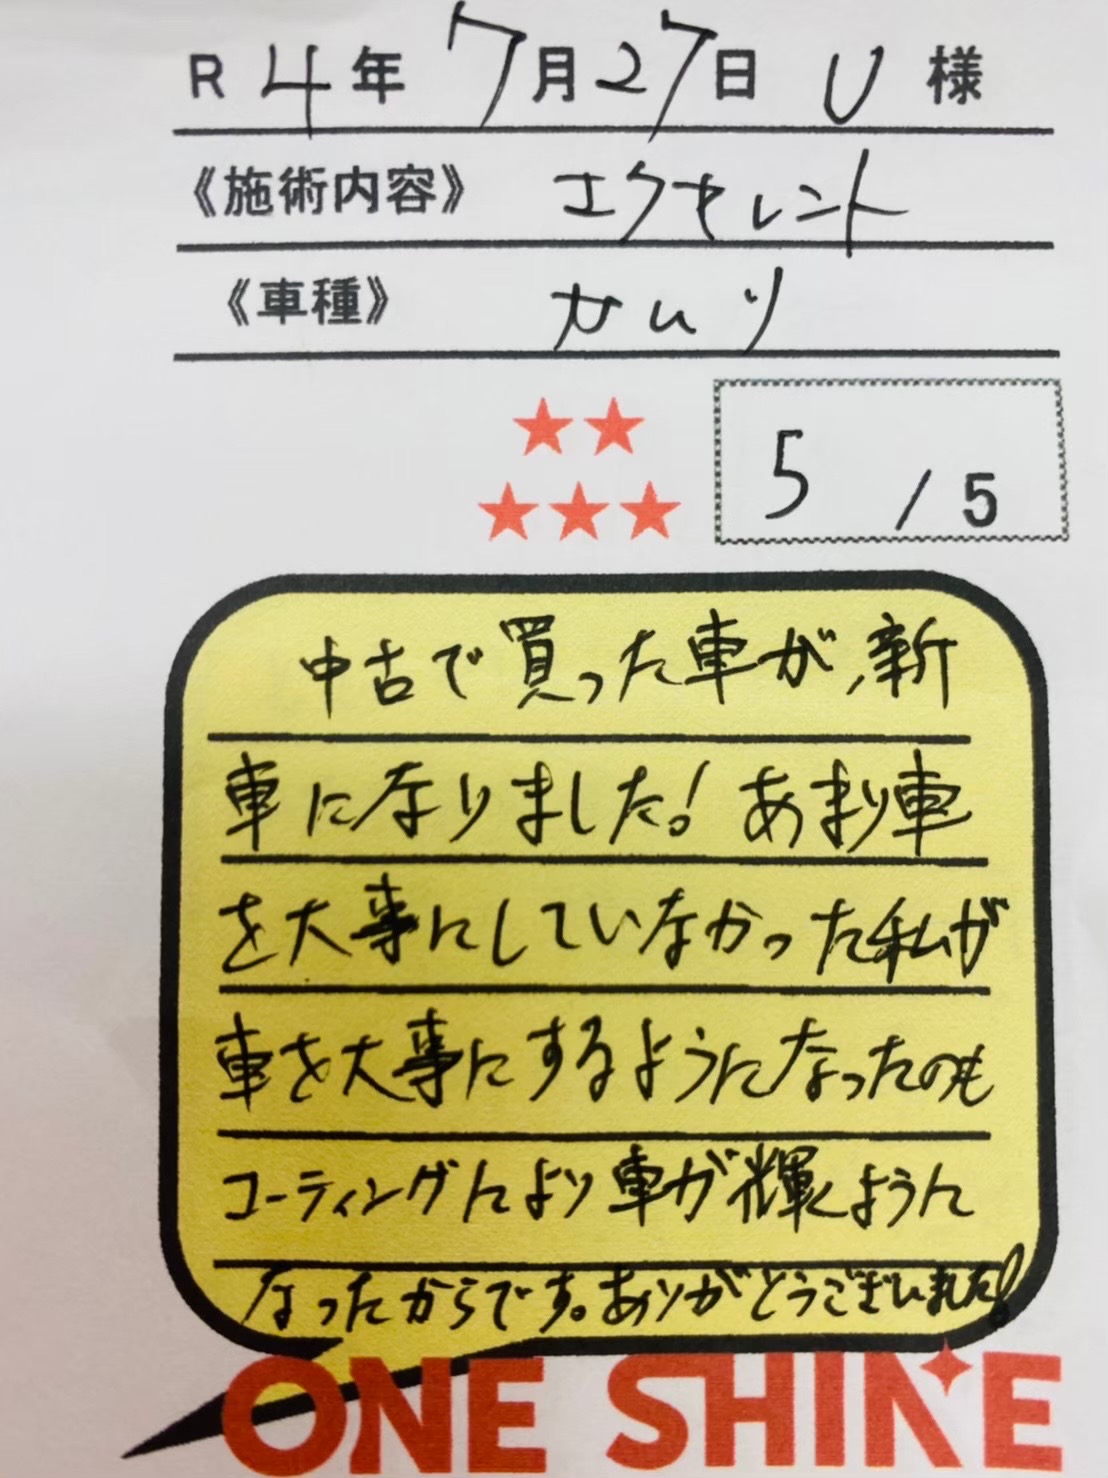 R 4年 7月27日 U 様
《施術内容》 エクセレント
《車種》 カムリ
5 / 5
中古で買った車が、新
車になりました!あまり車
を大事にしていなかった私が
車を大事にするようになったのも
コーティングにより車が輝くように
なったからです。ありがとうございました!
ONE SHINE